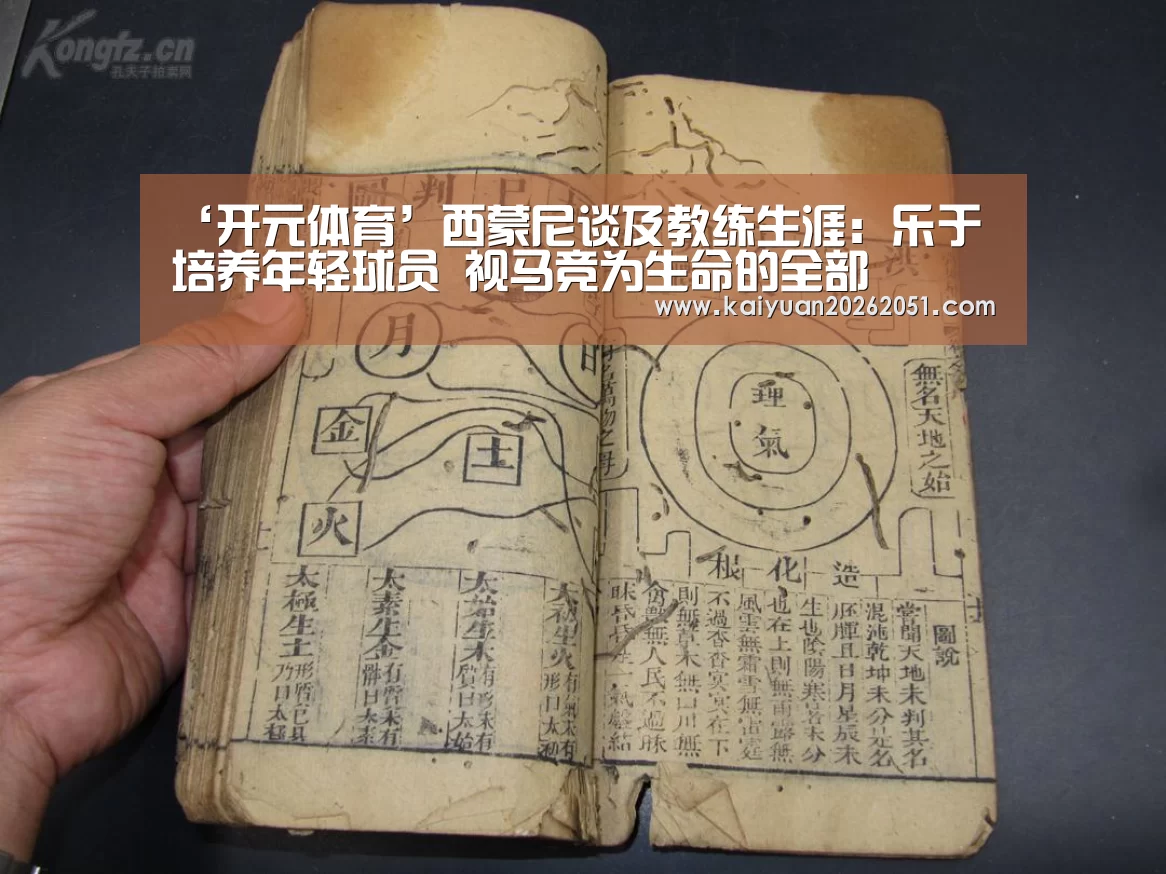 Kongfz.cn
孔夫子拍卖网
‘开元体育’西蒙尼谈及教练生涯：乐于
培养年轻球员 视马竞为生命的全部
www.kaiyuan20262051.com
無名天地之始
理氣
造化根
圖說
嘗聞天地未判其名
混沌乾坤未分是名
胚腪且日月星辰未
生也陰陽寒暑未分
也在上則無雨露無
風雲無霜雪無雷霆
不過杳杳冥冥在下
則無草木無山川無
禽獸無人民不過昧
昧昏昏 一氣盤結
有名萬物之母
判
月
金
土
火
太初生火 有氣未有形曰太初
太始生木 有形未有質曰太始
太素生金 有質未有體曰太素
太極生土 形質已具乃曰太極